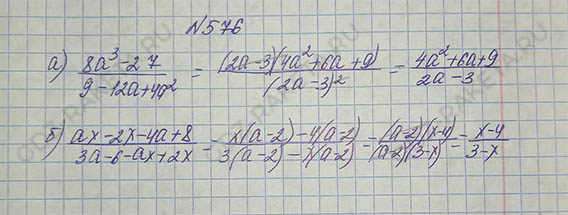 №576
а) (8a³-27)/(9-12a+4a²) = ((2a-3)(4a²+6a+9))/((2a-3)²) = (4a²+6a+9)/(2a-3)
б) (ax-2x-4a+8)/(3a-6-ax+2x) = (x(a-2)-4(a-2))/(3(a-2)-x(a-2)) = ((a-2)(x-4))/((a-2)(3-x)) = (x-4)/(3-x)